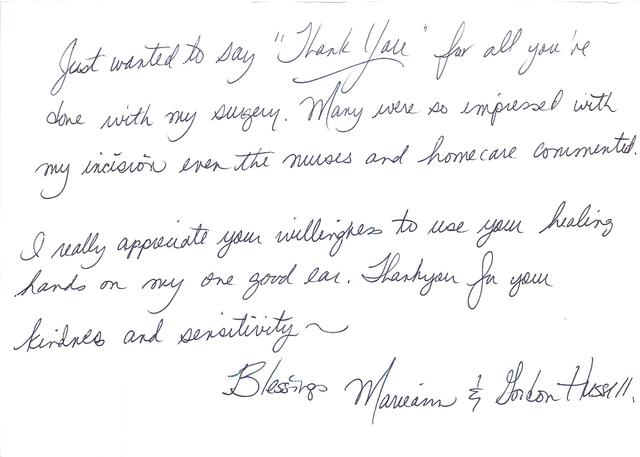 Just wanted to say "Thank You" for all you've
done with my surgery. Many were so impressed with
my incision even the nurses and homecare commented.
I really appreciate your willingness to use your healing
hands on my one good ear. Thankyou for your
kindness and sensitivity ~
Blessings Marieann & Gordon